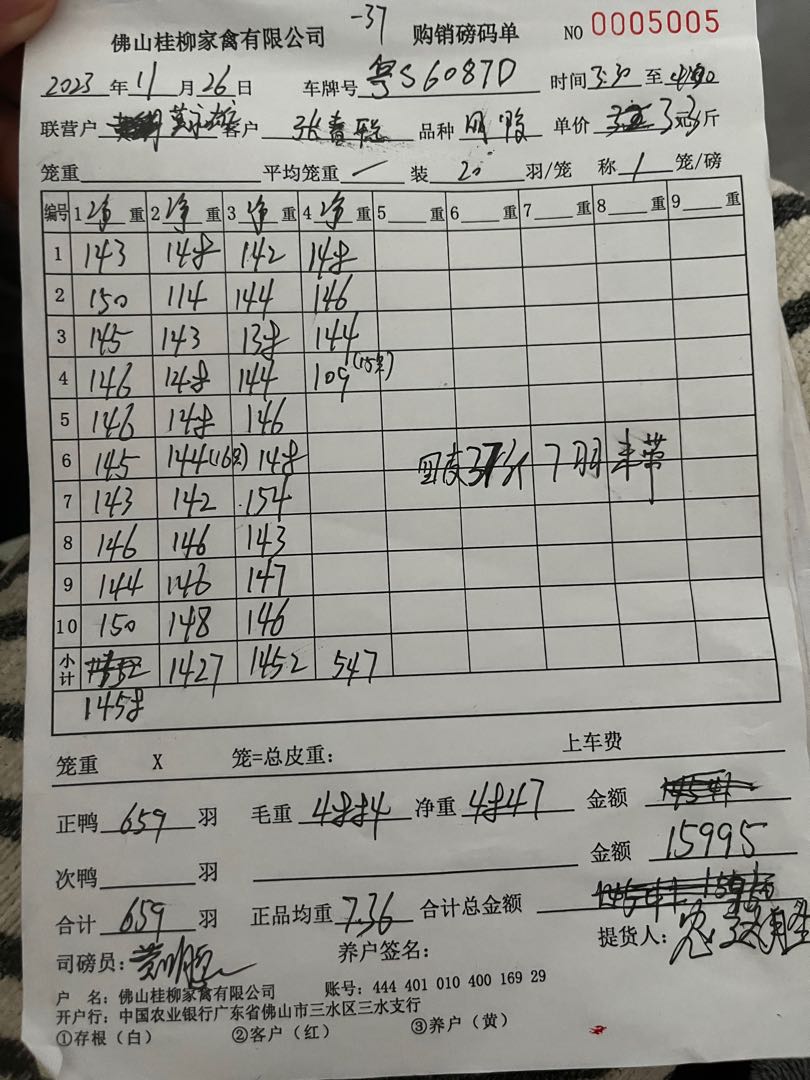 -37
佛山桂柳家禽有限公司 购销磅码单 NO 0005005
2023 年 11 月 26 日 车牌号 粤S6087D 时间 3:30 至
联营户 客户 张春 品种 单价 3.3 元/斤
笼重 平均笼重 — 装 20 羽/笼 称 1 笼/磅
编号 1 净 重 2 净 重 3 净 重 4 净 重 5 重 6 重 7 重 8 重 9 重
1 143 148 142 148
2 150 114 144 146
3 145 143 138 144
4 146 148 144 109
5 146 148 146
6 145 144(16只) 148 回皮37斤 7羽未带
7 143 142 154
8 146 146 143
9 144 146 147
10 150 148 146
小计 1427 1452 547
1458
笼重 X 笼=总皮重: 上车费
正鸭 659 羽 毛重 4884 净重 4847 金额
次鸭 羽 金额 15995
合计 659 羽 正品均重 7.36 合计总金额
司磅员: 养户签名: 提货人:
户 名: 佛山桂柳家禽有限公司 账号: 444 401 010 400 169 29
开户行: 中国农业银行广东省佛山市三水区三水支行
①存根(白) ②客户(红) ③养户(黄)